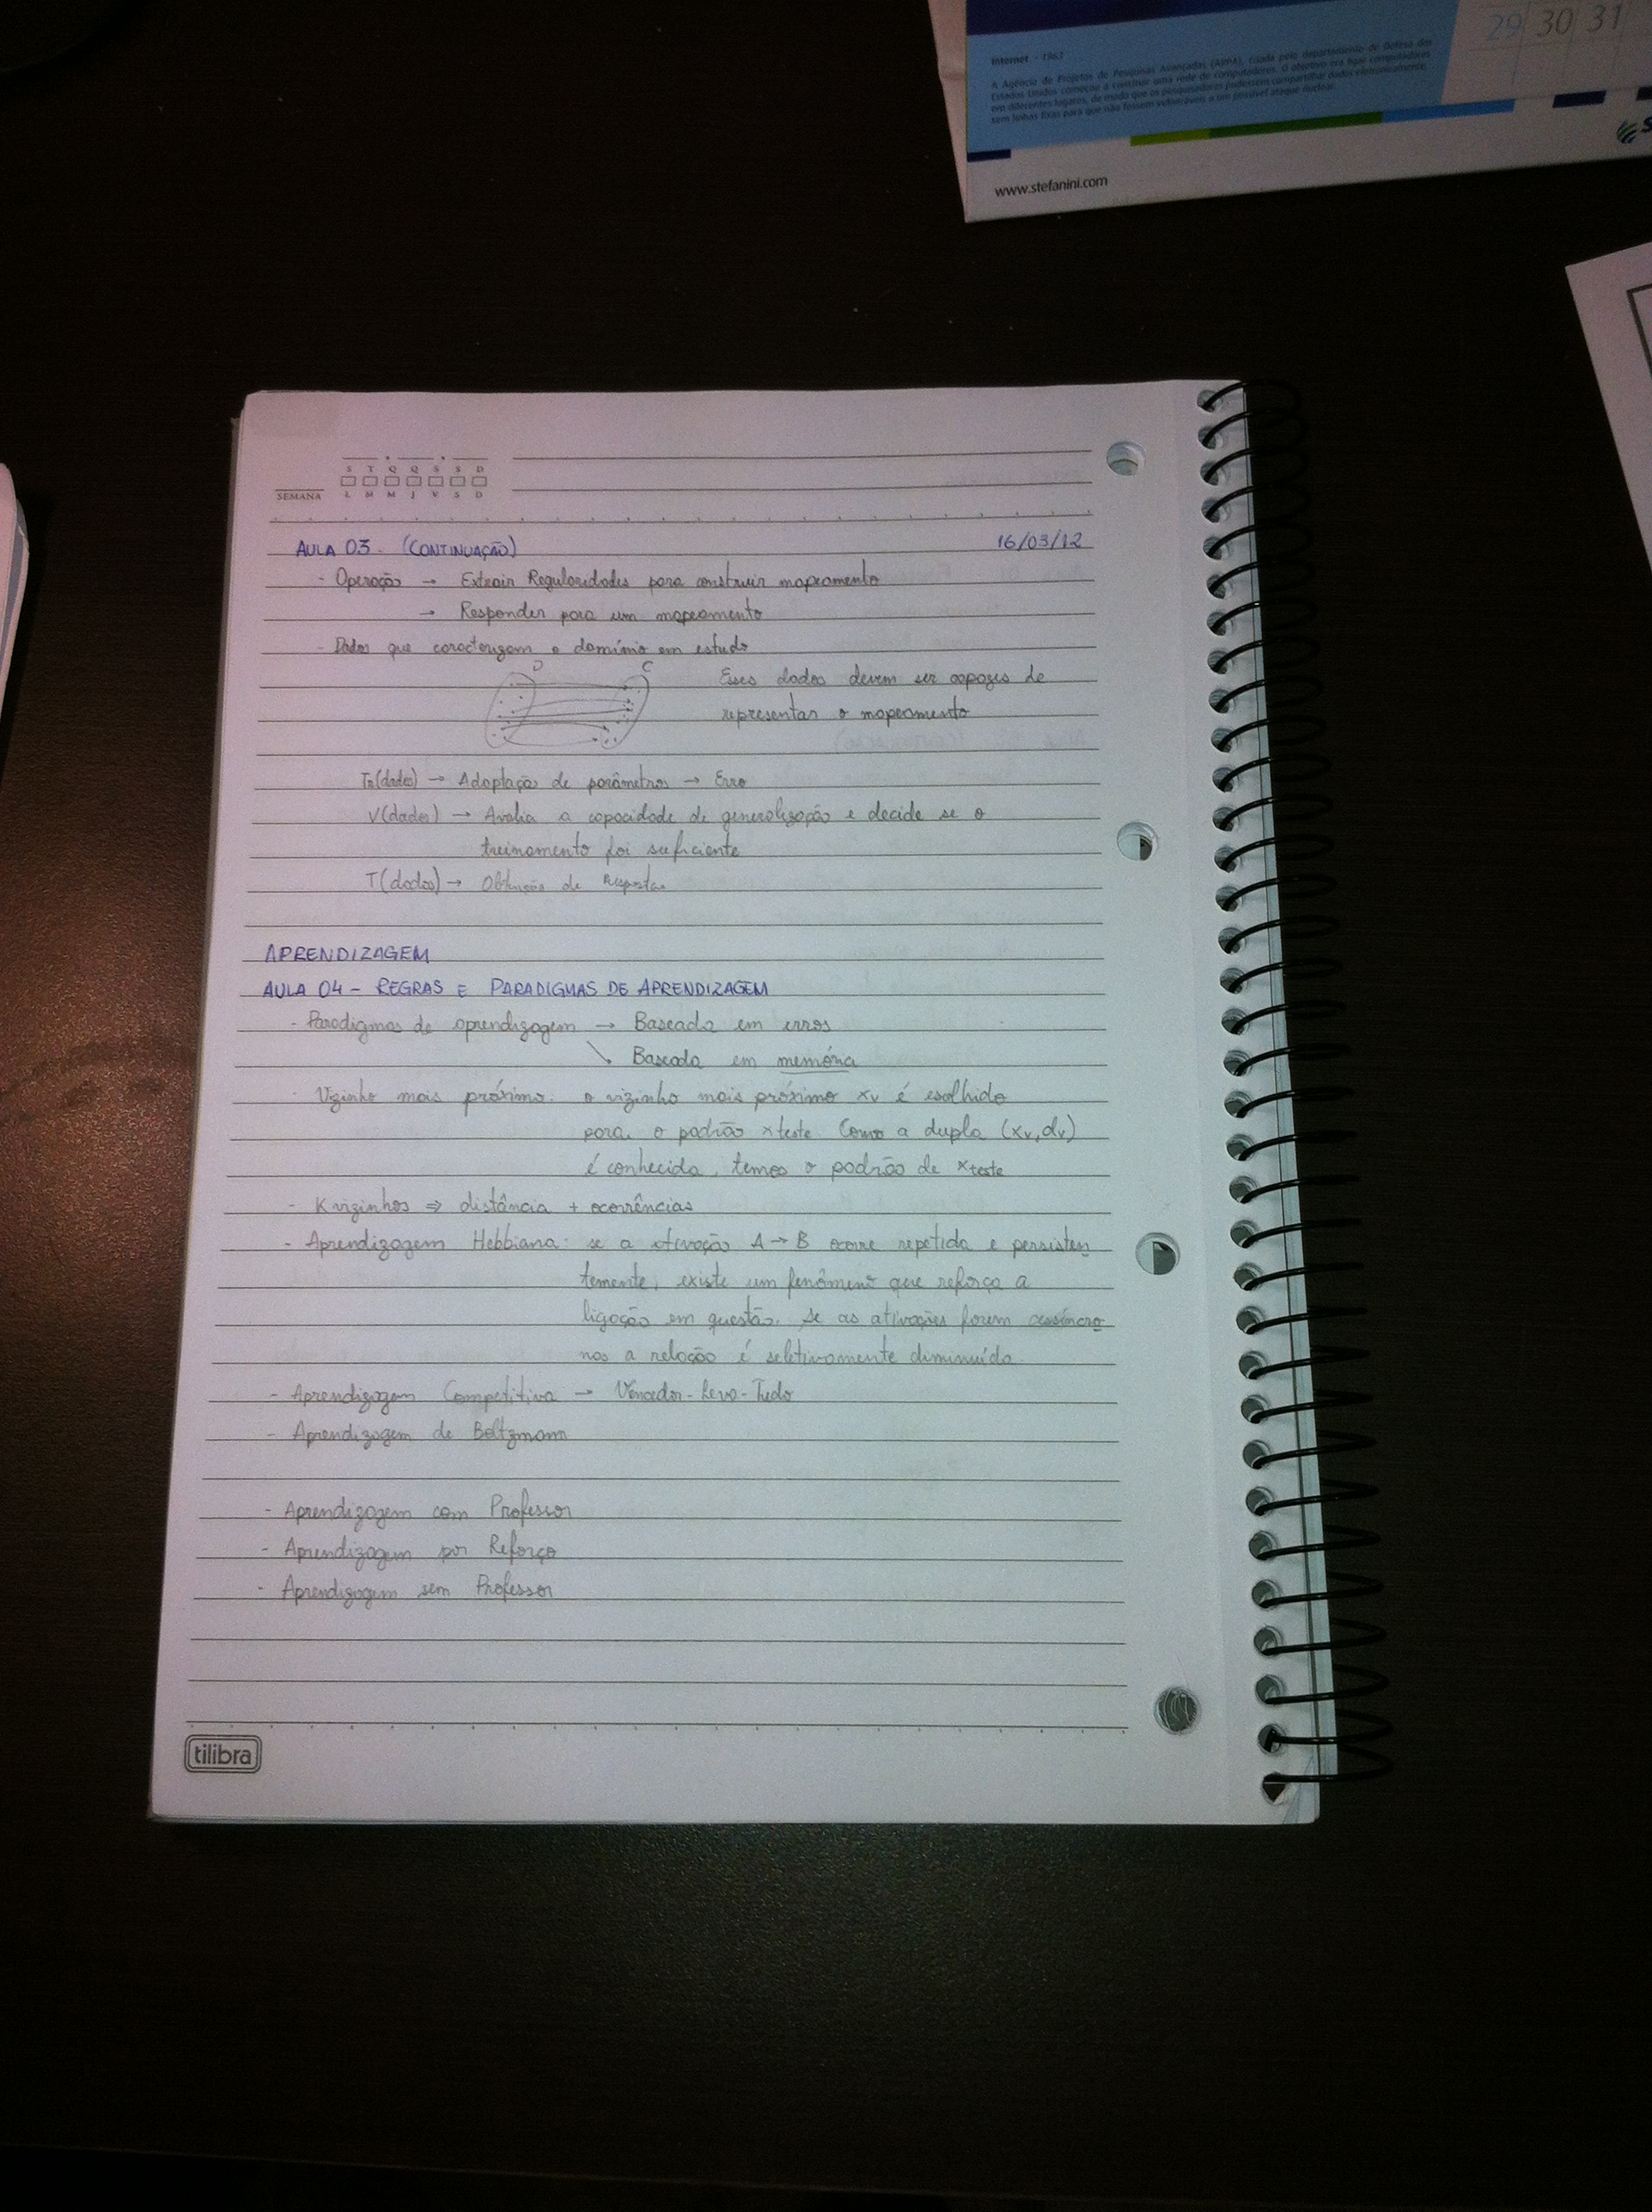 29 30 31
Internet - 1962
A Agência de Projetos de Pesquisas Avançadas (ARPA), criada pelo departamento de Defesa dos
Estados Unidos começou a construir uma rede de computadores. O objetivo era ligar computadores
em diferentes lugares, de modo que os pesquisadores pudessem compartilhar dados eletronicamente,
sem linhas fixas para que não fossem vulneráveis a um possível ataque nuclear.
www.stefanini.com
S T Q Q S S D
SEMANA L M M J V S D
AULA 03. (CONTINUAÇÃO) 16/03/12
- Operação → Extrair Regularidades para construir mapeamento
→ Responder para um mapeamento
- Dados que caracterizam o domínio em estudo
D C
Esses dados devem ser capazes de
representar o mapeamento
Tr(dados) → Adaptação de parâmetros → Erro
V(dados) → Avalia a capacidade de generalização e decide se o
treinamento foi suficiente
T(dados) → Obtenção de Respostas
APRENDIZAGEM
AULA 04 - REGRAS E PARADIGMAS DE APRENDIZAGEM
- Paradigmas de aprendizagem → Baseada em erros
↘ Baseada em memória
- Vizinho mais próximo: o vizinho mais próximo xv é escolhido
para o padrão xteste. Como a dupla (xv, dv)
é conhecida, temos o padrão de xteste
- K vizinhos ⇒ distância + ocorrências
- Aprendizagem Hebbiana: se a ativação A → B ocorre repetida e persisten
temente, existe um fenômeno que reforça a
ligação em questão. Se as ativações forem assíncro
nas a relação é seletivamente diminuída.
- Aprendizagem Competitiva → Vencedor-Leva-Tudo
- Aprendizagem de Boltzmann
- Aprendizagem com Professor
- Aprendizagem por Reforço
- Aprendizagem sem Professor
tilibra